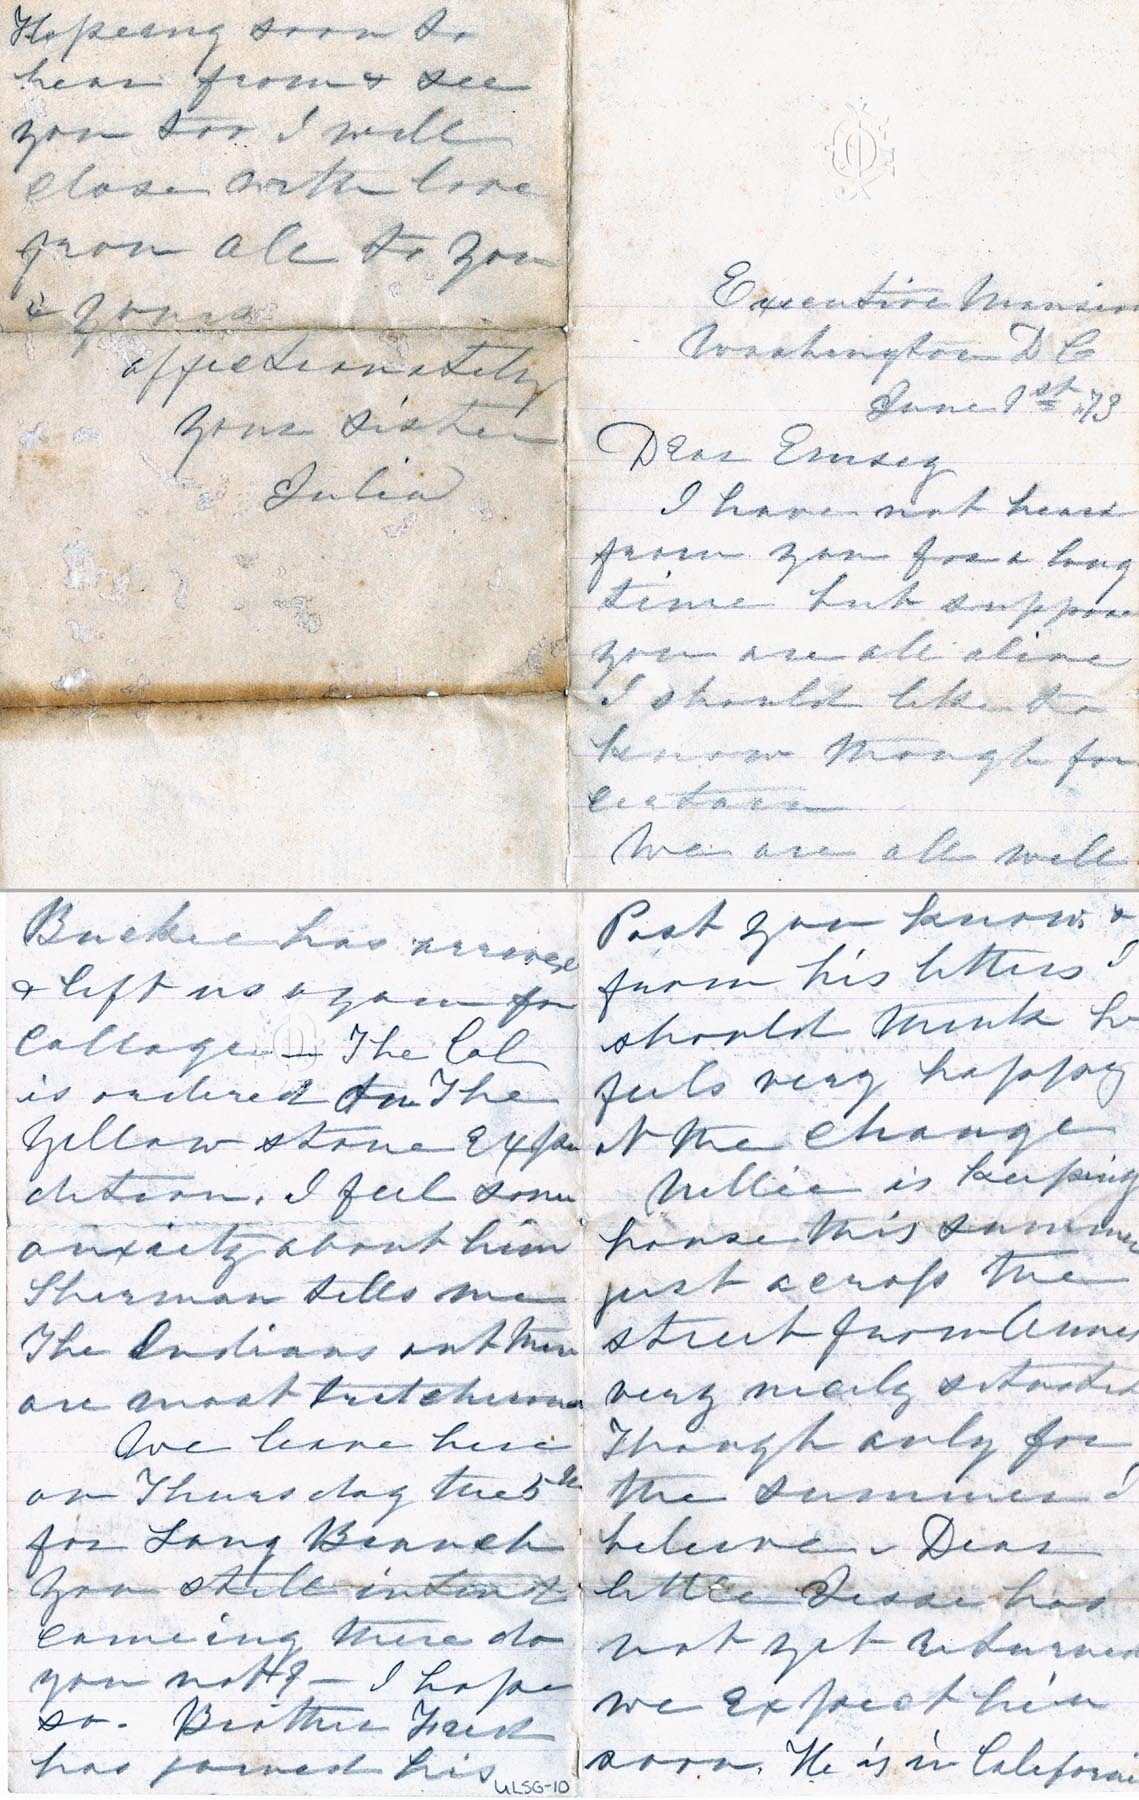 Executive Mansion
Washington D C
June 1st 73
Dear Emsey
I have not heard
from you for a long
time but suppose
you are all alive
I should like to
know though for
certain
We are all well
Buckie has arrived
& left us again for
Collage — The Col
is ordered to The
Yellow stone Expe
dition. I feel some
anxiety about him
Sherman tells me
The Indians out there
are most tretcherous
We leave here
on Thursday the 5th
for Long Branch
You still intend
comeing there do
you not? — I hope
so. Brother Fred
has joined his
Post you know &
from his letters I
should think he
feels very happy
at the change
Nellie is keeping
house this summer
just across the
street from Annies
very nicely situated
Though only for
the summer I
beleive. Dear
little Jesse has
not yet returned
we expect him
soon. He is in California
Hopeing soon to
hear from & see
you too I will
close with love
from all to you
& yours
affectionately
your sister
Julia
ULSG-10